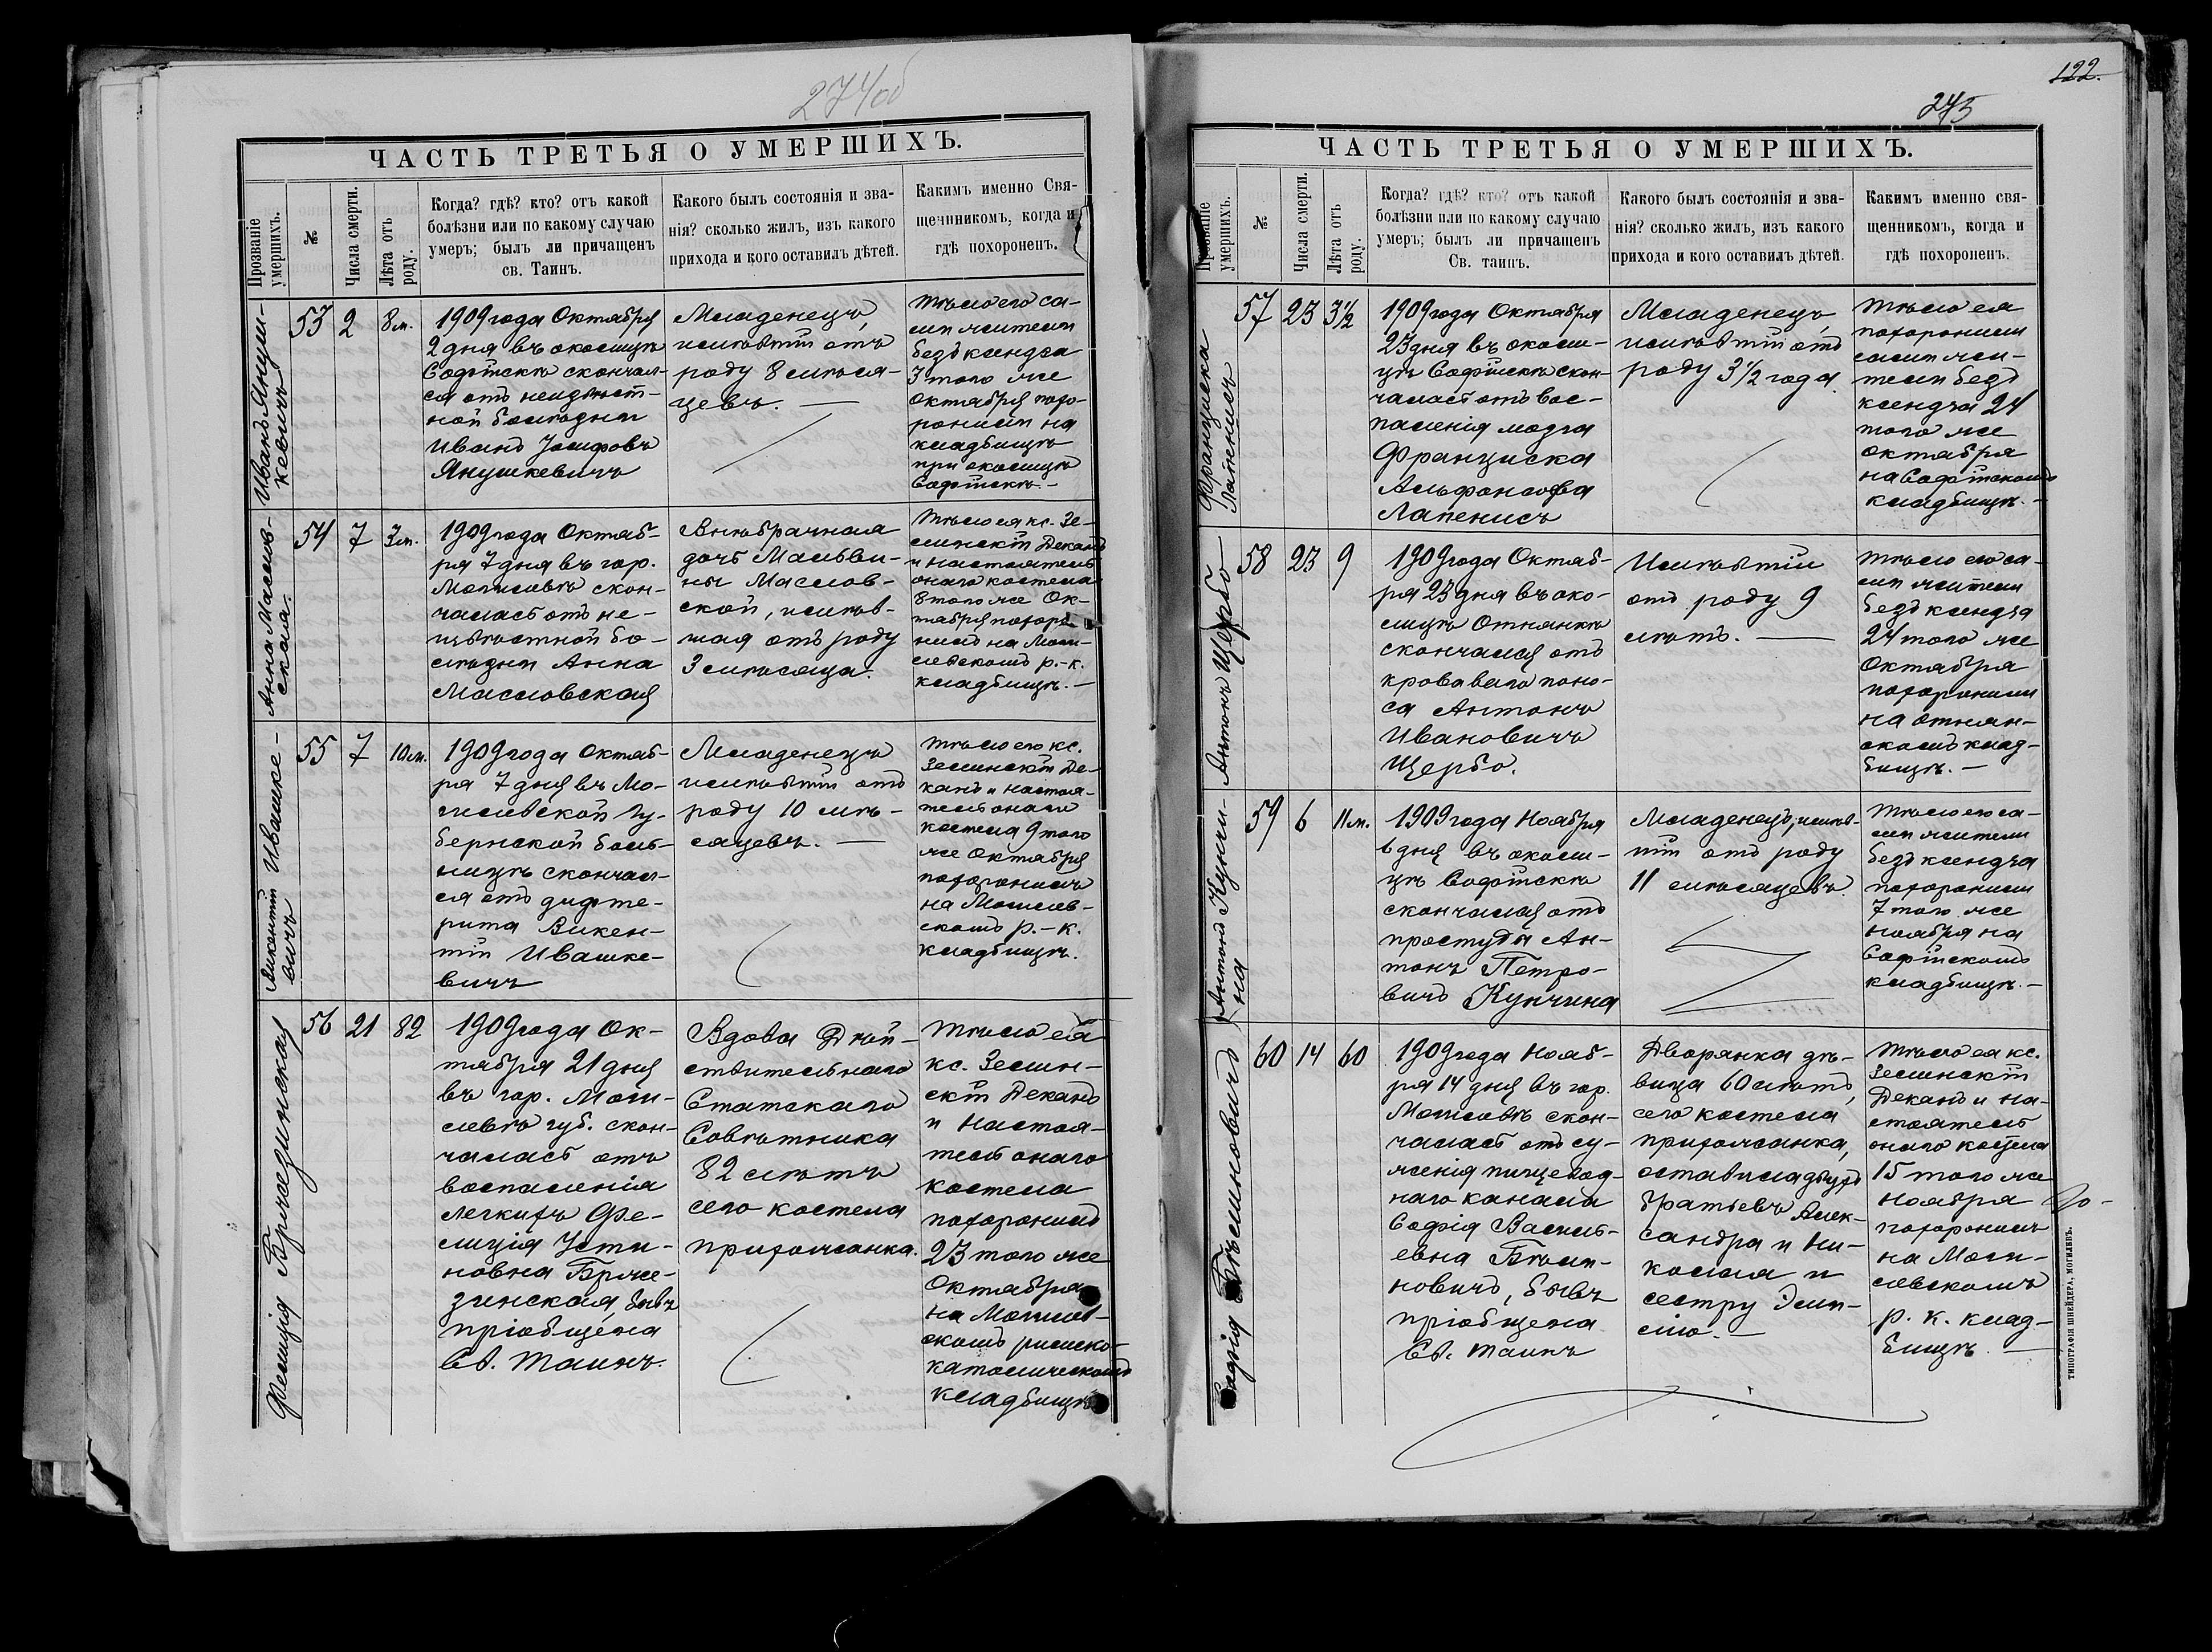 274об
ЧАСТЬ ТРЕТЬЯ О УМЕРШИХЪ.
Прозваніе умершихъ.
№
Числа смерти.
Лѣта отъ роду.
Когда? гдѣ? кто? отъ какой
болѣзни или по какому случаю
умеръ; былъ ли причащенъ
св. Таинъ.
Какого былъ состоянія и зва-
нія? сколько жилъ, изъ какого
прихода и кого оставилъ дѣтей.
Какимъ именно Свя-
щенникомъ, когда и
гдѣ похороненъ.
53 2 8 м.
1909 года Октября
2 дня въ околицѣ
Софійскѣ скончал-
ся отъ неизвѣст-
ной болѣзни
Иванъ Іосифовъ
Янушкевичъ
Младенецъ,
жившій отъ
роду 8 мѣся-
цевъ. —
Тѣло его са-
ми жители
безъ ксендза
3 того же
Октября похо-
ронили на
кладбищѣ
при околицѣ
Софійскѣ. —
Анна Маслов-
ская.
54 7 3 м.
1909 года Октяб-
ря 7 дня въ гор.
Могилевѣ скон-
чалась отъ не-
извѣстной бо-
лѣзни Анна
Масловская
Внѣбрачная
дочь Мальви-
ны Маслов-
ской, жив-
шая отъ роду
3 мѣсяца.
Тѣло ея кс. Зе-
линскій Деканъ
и настоятель
онаго костела
8 того же Ок-
тября похоро-
нилъ на Моги-
левскомъ р.-к.
кладбищѣ. —
Викентій Ивашке-
вичъ
55 7 10 м.
1909 года Октяб-
ря 7 дня въ Мо-
гилевской Гу-
бернской боль-
ницѣ скончал-
ся отъ дифте-
рита Викен-
тій Ивашке-
вичъ
Младенецъ
жившій отъ
роду 10 мѣ-
сяцевъ. —
Тѣло его кс.
Зелинскій Де-
канъ и настоя-
тель онаго
костела 9 того
же Октября
похоронилъ
на Могилев-
скомъ р.-к.
кладбищѣ.
Фелиція Бржезинская
56 21 82
1909 года Ок-
тября 21 дня
въ гор. Моги-
левѣ губ. скон-
чалась отъ
воспаленія
легкихъ Фе-
лиція Усти-
новна Брже-
зинская, бывъ
пріобщена
Св. Таинъ.
Вдова Дѣй-
ствительнаго
Статскаго
Совѣтника
82 лѣтъ
сего костела
прихожанка.
Тѣло ея
кс. Зелин-
скій Деканъ
и Настоя-
тель онаго
костела
похоронилъ
23 того же
Октября
на Могилев-
скомъ римско-
католическомъ
кладбищѣ
122.
275
ЧАСТЬ ТРЕТЬЯ О УМЕРШИХЪ.
Прозваніе умершихъ.
№
Числа смерти.
Лѣта отъ роду.
Когда? гдѣ? кто? отъ какой
болѣзни или по какому случаю
умеръ; былъ ли причащенъ
Св. таинъ.
Какого былъ состоянія и зва-
нія? сколько жилъ, изъ какого
прихода и кого оставилъ дѣтей.
Какимъ именно свя-
щенникомъ, когда и
гдѣ похороненъ.
Франциска
Лапенисъ
57 23 3½
1909 года Октября
23 дня въ околи-
цѣ Софійскѣ скон-
чалась отъ вос-
паленія мозга
Франциска
Альфонсова
Лапенисъ
Младенецъ,
жившій отъ
роду 3½ года
Тѣло ея
похоронили
сами жи-
тели безъ
ксендза 24
того же
октября
на Софійскомъ
кладбищѣ. —
Антонъ Щербо
58 23 9
1909 года Октяб-
ря 23 дня въ око-
лицѣ Отнянкѣ
скончался отъ
кроваваго поно-
са Антонъ
Ивановичъ
Щербо.
Жившій
отъ роду 9
лѣтъ. —
Тѣло его са-
ми жители
безъ ксендза
24 того же
Октября
похоронили
на Отнян-
скомъ клад-
бищѣ. —
Антонъ Кунчи-
на
59 6 11 м.
1909 года Ноября
6 дня въ околи-
цѣ Софійскѣ
скончался отъ
простуды Ан-
тонъ Петро-
вичъ Кунчина
Младенецъ, жив-
шій отъ роду
11 мѣсяцевъ.
Тѣло его са-
ми жители
безъ ксендза
похоронили
7 того же
ноября на
Софійскомъ
кладбищѣ. —
Софія Бѣлиновичъ
60 14 60
1909 года Нояб-
ря 14 дня въ гор.
Могилевѣ скон-
чалась отъ су-
женія пищевод-
наго канала
Софія Василь-
евна Бѣли-
новичъ, бывъ
пріобщена
Св. Таинъ
Дворянка дѣ-
вица 60 лѣтъ,
сего костела
прихожанка,
оставила двухъ
братьевъ Алек-
сандра и Ни-
колая и
сестру Эми-
лію. —
Тѣло ея кс.
Зелинскій
Деканъ и на-
стоятель
онаго костела
15 того же
Ноября
похоронилъ
на Моги-
левскомъ
р. к. клад-
бищѣ. —
ТИПОГРАФІЯ ШНЕЙДЕРА, МОГИЛЕВЪ.